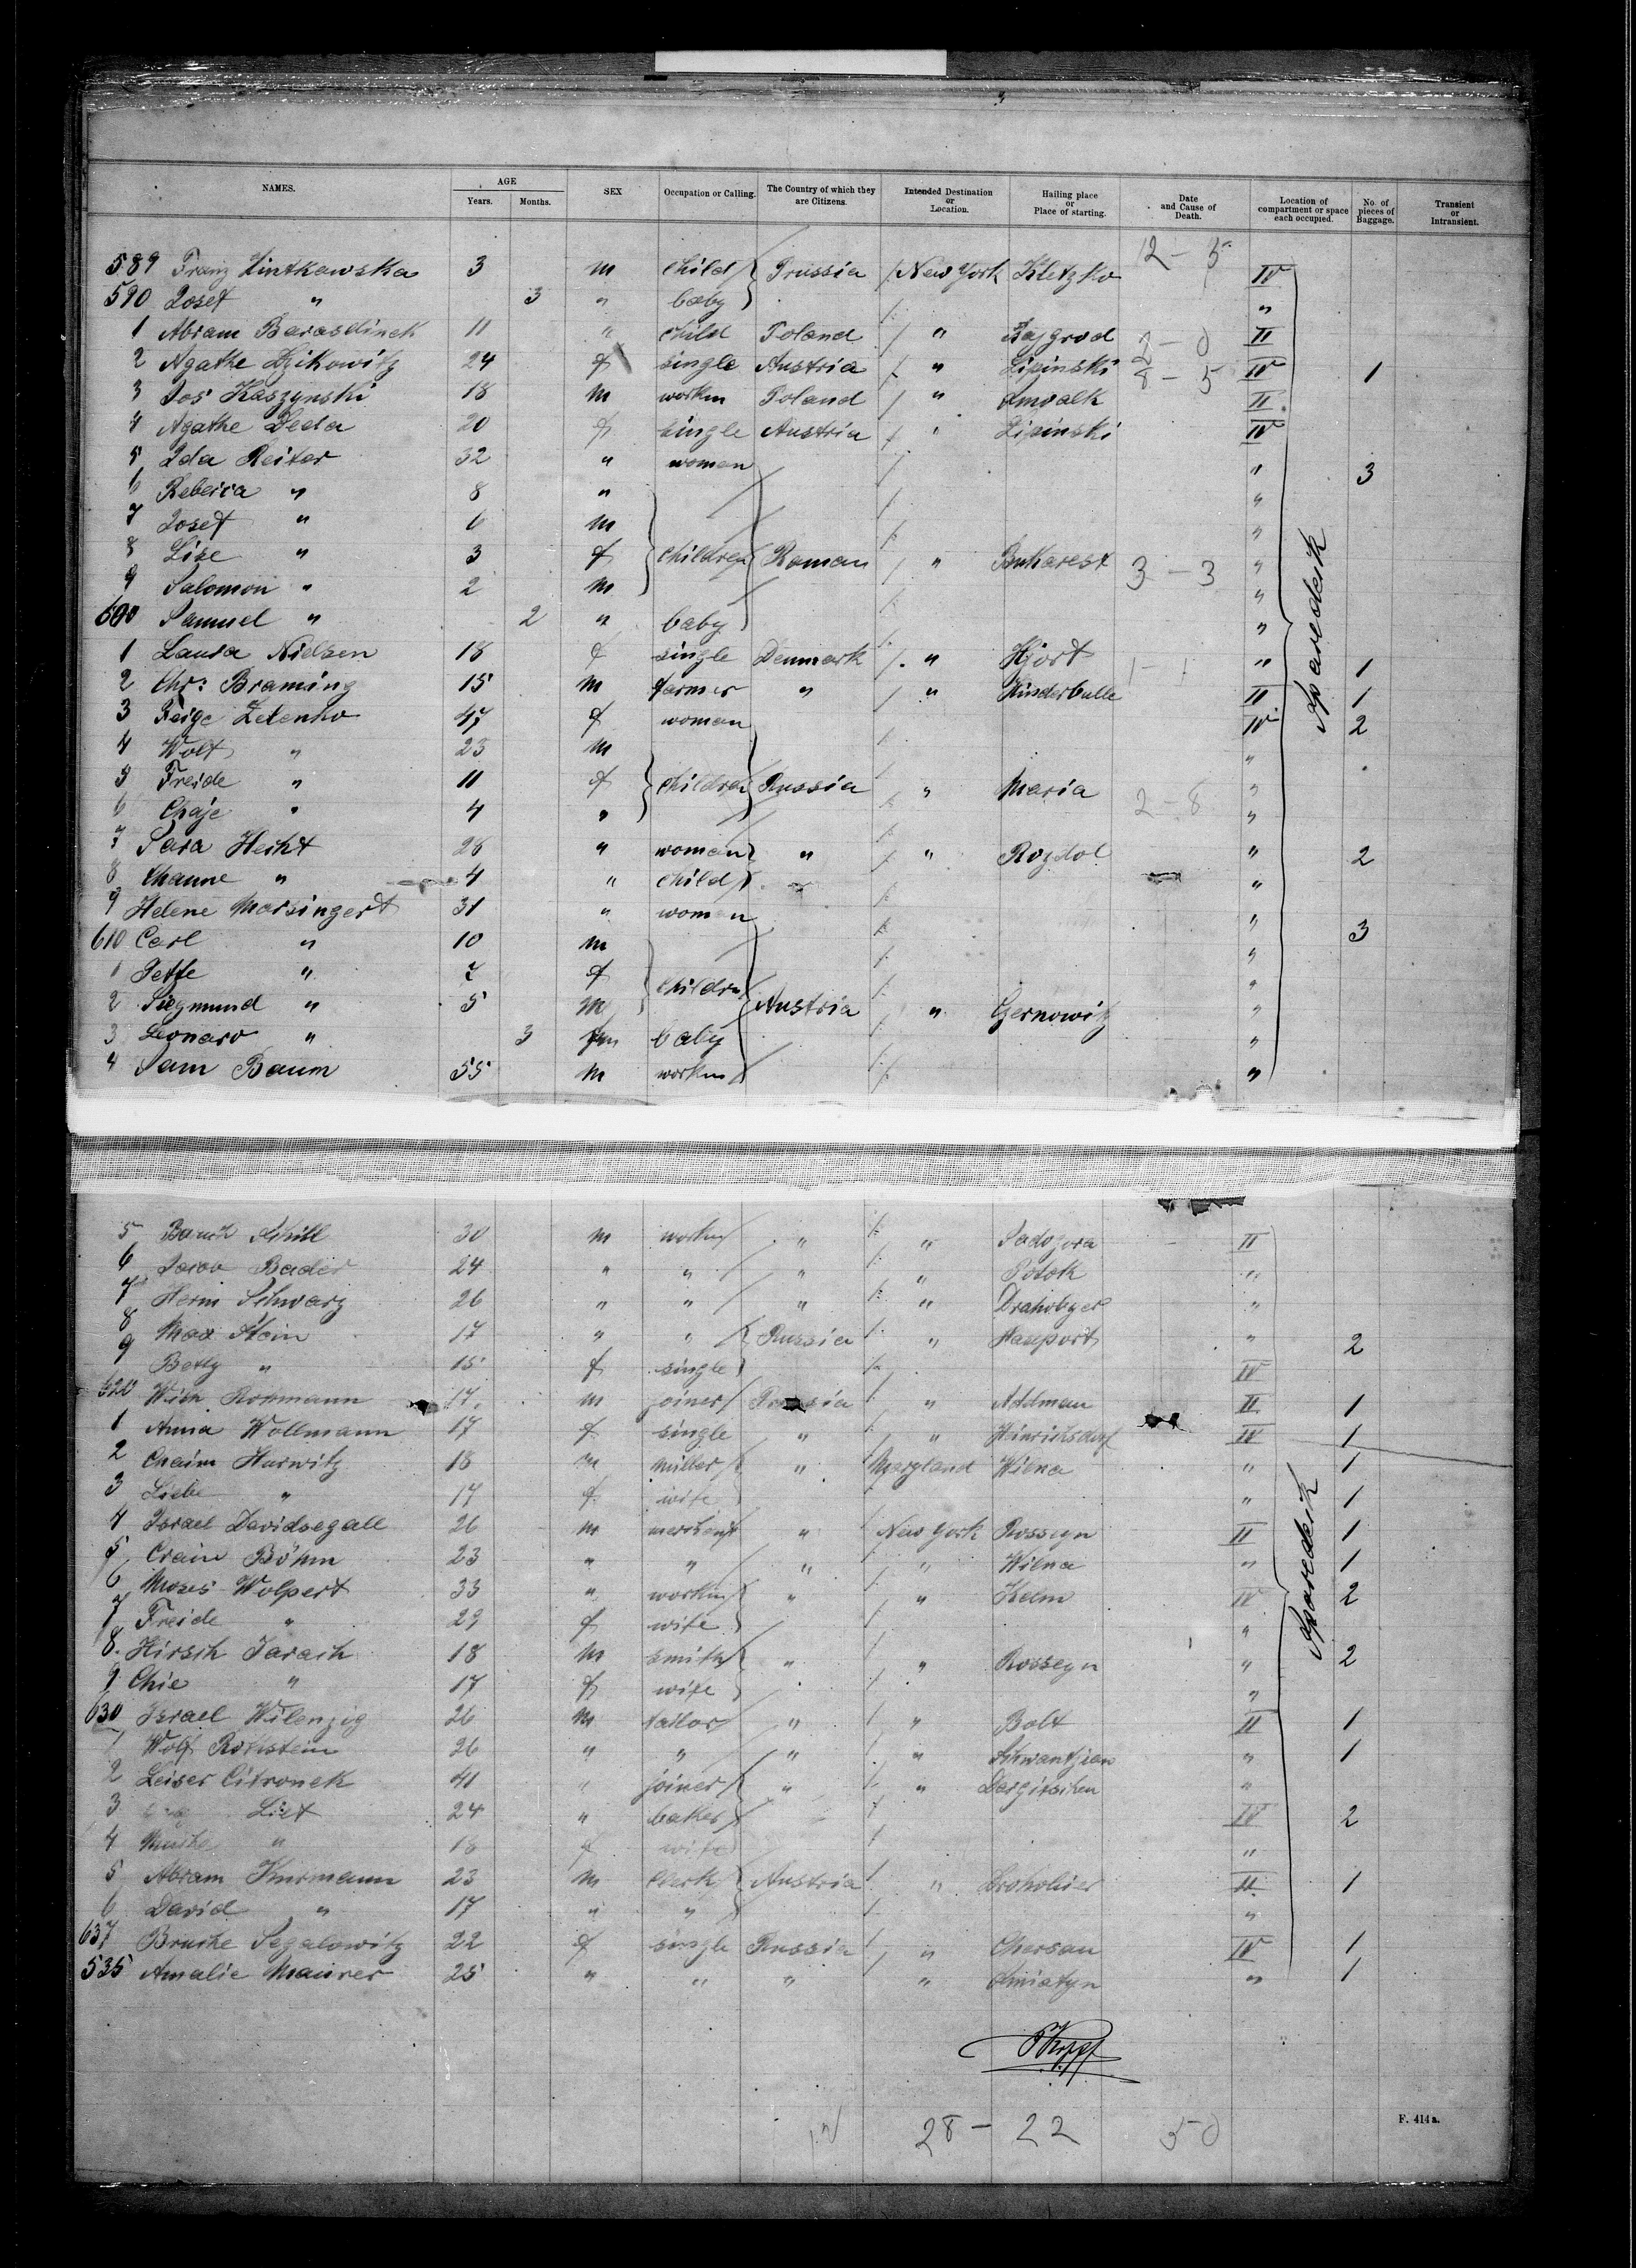 NAMES. AGE Years. Months. SEX Occupation or Calling. The Country of which they are Citizens. Intended Destination or Location. Hailing place or Place of starting. Date and Cause of Death. Location of compartment or space each occupied. No. of pieces of Baggage. Transient or Intransient.
12 - 5
589 Franz Zintkawska 3 m child Prussia New York Kletzko IV
590 Josef " 3 " baby "
1 Abram 11 " child Poland " Bajgrod II
2 - 0
2 Agathe Dzikowitz 24 f single Austria " Lipinski IV 1
8 - 5
3 Jos Kaszynski 18 m workm Poland " II
4 Agathe Deda 20 f single Austria " Lipinski IV
5 Ida Reiter 32 " woman " 3
6 Rebecca " 8 " "
7 Josef " 6 m "
8 Lise " 3 f children Roman " Bukarest 3 - 3 "
9 Salomon " 2 m "
600 Samuel " 2 " baby "
1 Laura Nielsen 18 f single Denmark " Hjort 1 - 1 " 1
2 Chr: Braming 15 m farmer " " Hinderbulle II 1
3 Feige Zelenko 47 f woman IV 2
4 Wolf " 23 m "
5 Freide " 11 f children Russia " Maria "
6 Chaje " 4 " 2 - 8 "
7 Sara Hecht 28 " woman " " Rozdol " 2
8 Channe " 4 " child "
9 Helene Morsingert 31 " woman "
610 Carl " 10 m " 3
1 Peppe " 7 f "
2 Siegmund " 5 m children Austria " Czernowitz "
3 Leonard " 3 m baby "
4 Sam Baum 55 m workm "
Sparedeck
5 Baruch Schill 30 m workm " " Sadogora II
6 Jacob Bader 24 " " " " Potok "
7 Herm Schwarz 26 " " " " Drahobyer "
8 Max Stein 17 " " Russia " Hasenport " 2
9 Betty " 15 f single IV
620 Wilh Rossmann 17 m joiner Prussia " Addman II 1
1 Anna Wollmann 17 f single " " Heinrichsdorf IV 1
2 Chaim Hurwitz 18 m miller " Maryland Wilna " 1
3 Liebe " 17 f wife " 1
4 Israel Davidsegall 26 m merchant " New York Rossegn II 1
5 Crain Böhm 23 " " " " Wilna " 1
6 Moses Wolpert 33 " workm " " Kelm IV 2
7 Freide " 29 f wife "
8 Hirsch Jarach 18 m smith " " Rossegn " 2
9 Chie " 17 f wife "
630 Israel Wilenzig 26 m tailor " " Bolt II 1
1 Wolf Rothstein 26 " " " " Schwantzian " 1
2 Leiser Citronek 41 " joiner " " "
3 Lief 24 " baker IV 2
4 " 18 f wife "
5 Abram Kurmann 23 m Clerk Austria " II 1
6 David " 17 " " "
637 Bruche Segalowitz 22 f single Russia " Chersau IV 1
535 Amalie Maurer 25 " " " " Sniatyn " 1
Sparedeck
28 - 22 50
F. 414a.